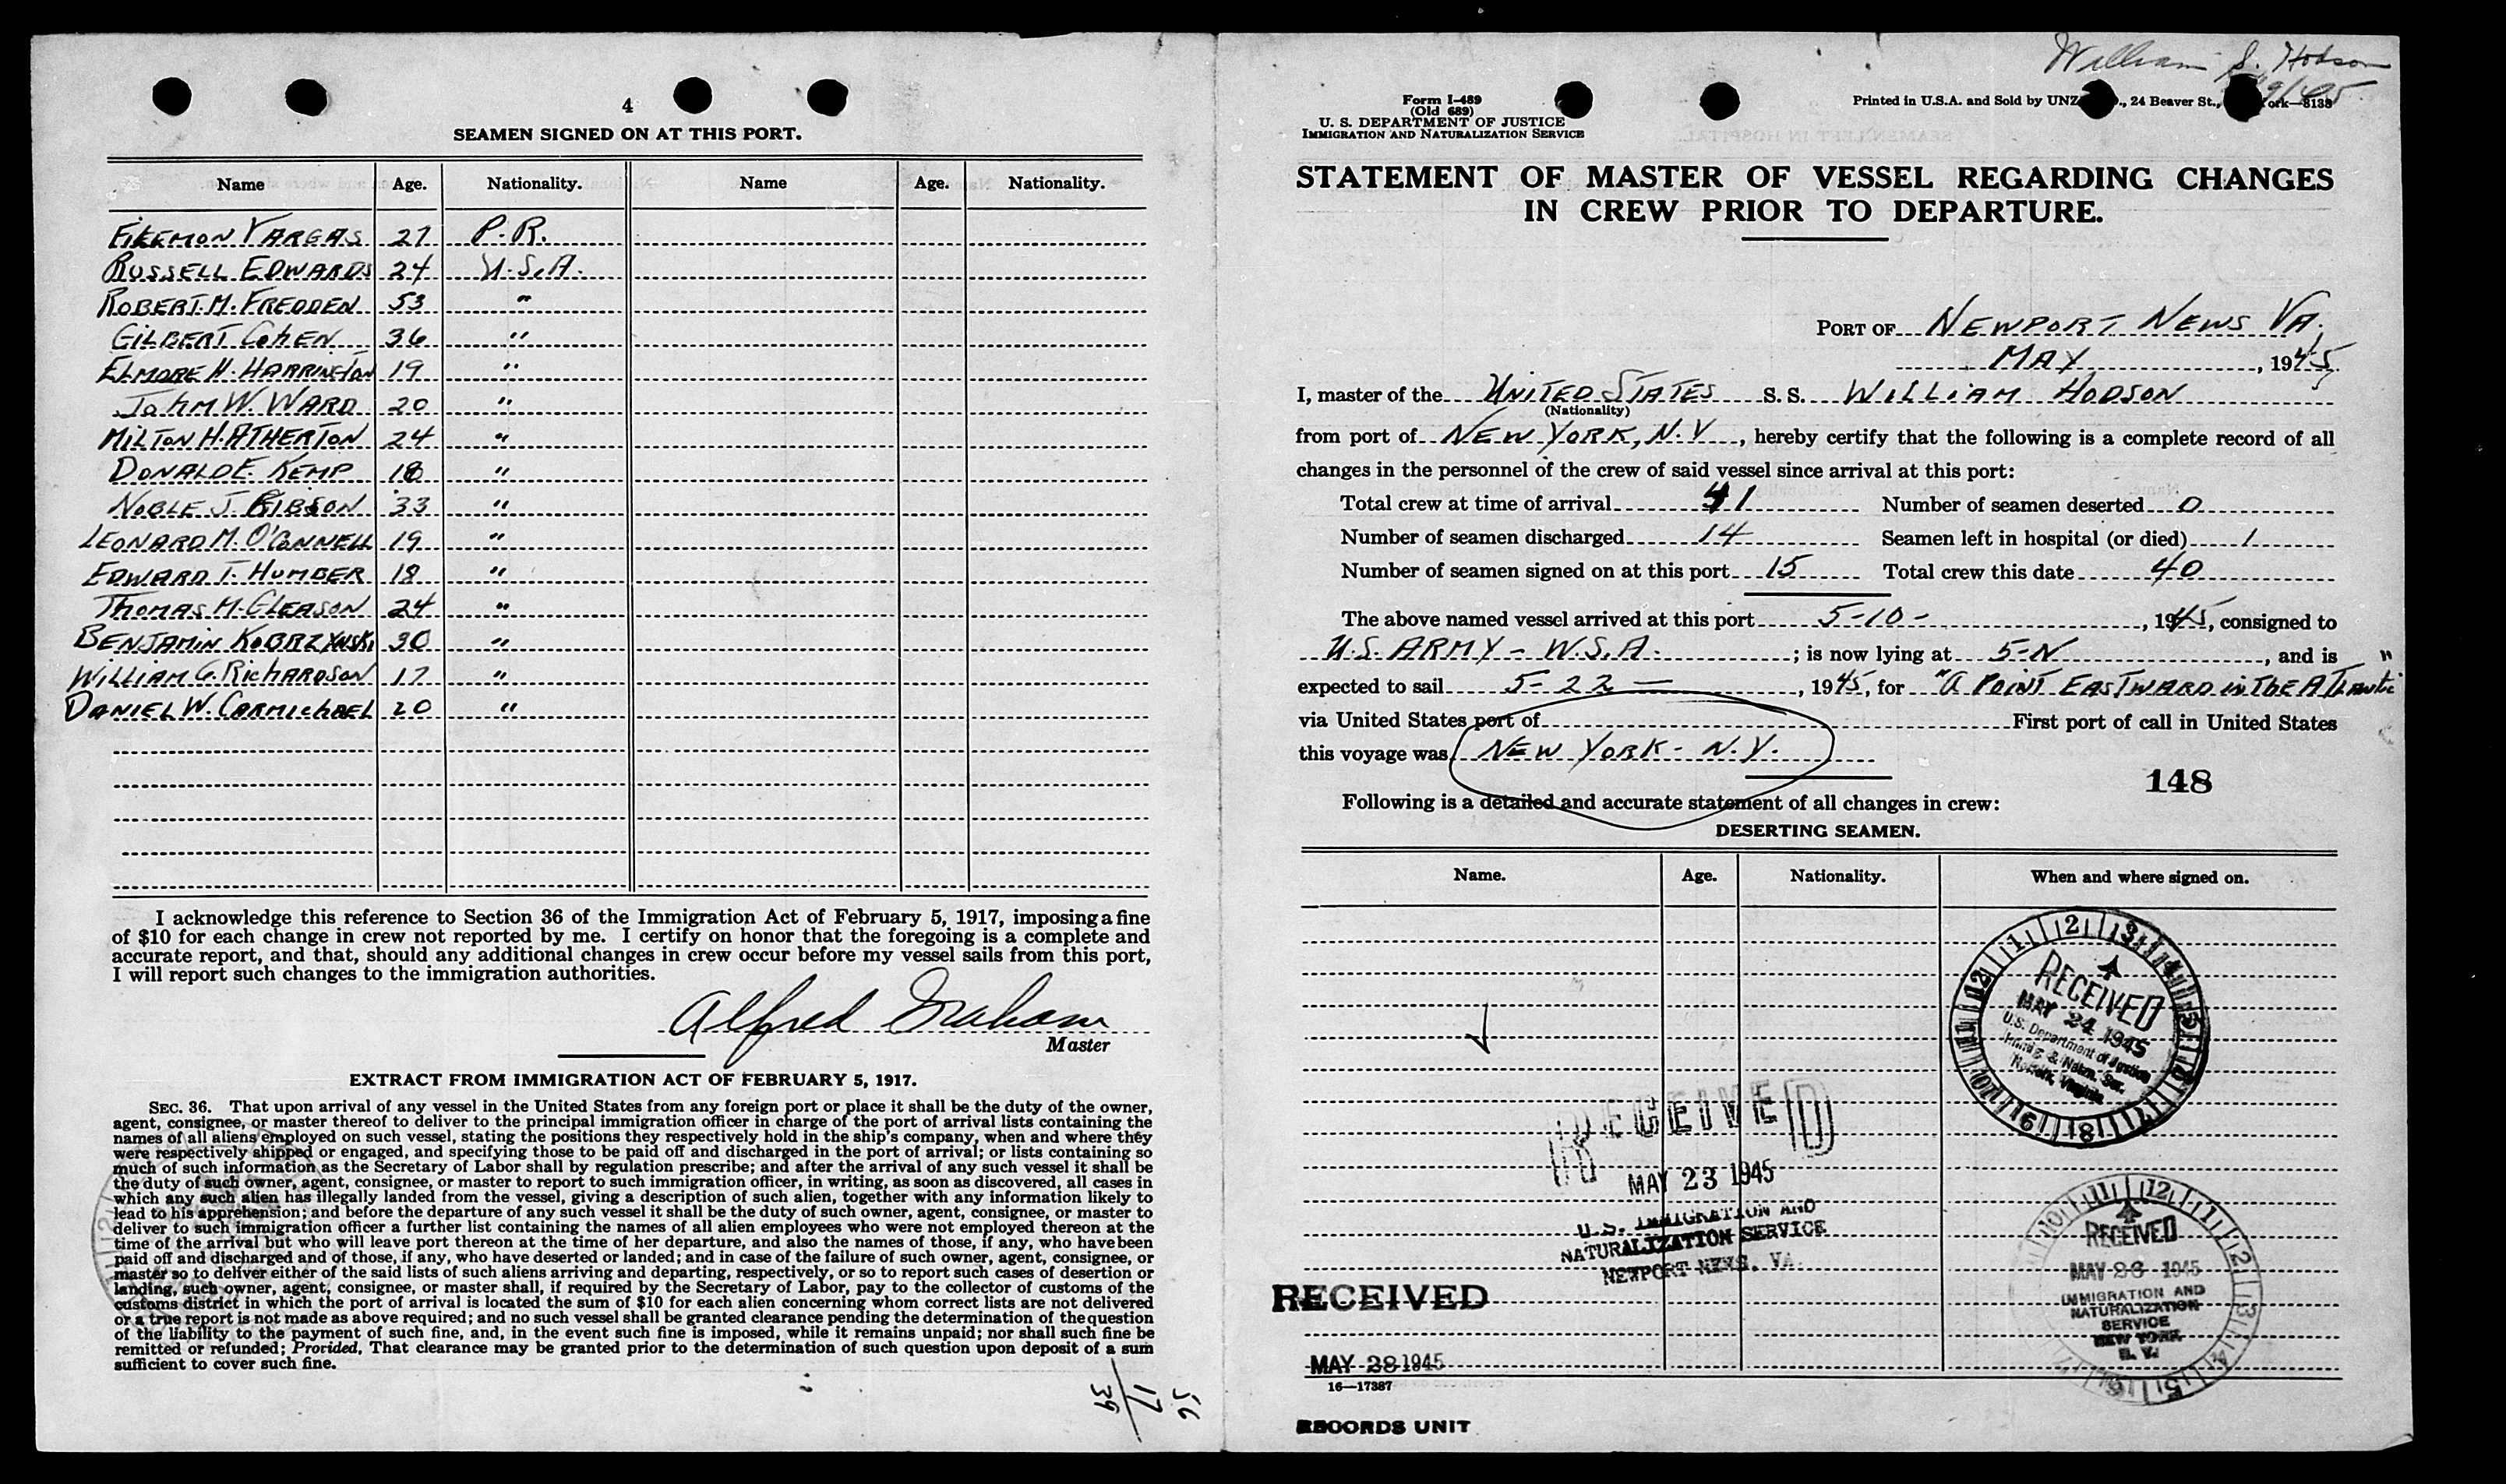 4
SEAMEN SIGNED ON AT THIS PORT.
Name Age. Nationality. Name Age. Nationality.
FILEMON VARGAS 27 P.R.
RUSSELL EDWARDS 24 U.S.A.
ROBERT.M. FREDDEN 53 "
GILBERT COHEN 36 "
ELMORE H. HARRINGTON 19 "
JOHM W. WARD 20 "
MILTON H. ATHERTON 24 "
DONALD E. KEMP 18 "
NOBLE J. 33 "
LEONARD M. O'CONNELL 19 "
EDWARD T. HUMBER 18 "
THOMAS M. GLEASON 24 "
BENJAMIN KOBRZYNSKI 30 "
WILLIAM G. RICHARDSON 17 "
DANIEL W. CARMICHAEL 20 "
I acknowledge this reference to Section 36 of the Immigration Act of February 5, 1917, imposing a fine
of $10 for each change in crew not reported by me. I certify on honor that the foregoing is a complete and
accurate report, and that, should any additional changes in crew occur before my vessel sails from this port,
I will report such changes to the immigration authorities.
Alfred Graham
Master
EXTRACT FROM IMMIGRATION ACT OF FEBRUARY 5, 1917.
SEC. 36. That upon arrival of any vessel in the United States from any foreign port or place it shall be the duty of the owner,
agent, consignee, or master thereof to deliver to the principal immigration officer in charge of the port of arrival lists containing the
names of all aliens employed on such vessel, stating the positions they respectively hold in the ship's company, when and where they
were respectively shipped or engaged, and specifying those to be paid off and discharged in the port of arrival; or lists containing so
much of such information as the Secretary of Labor shall by regulation prescribe; and after the arrival of any such vessel it shall be
the duty of such owner, agent, consignee, or master to report to such immigration officer, in writing, as soon as discovered, all cases in
which any such alien has illegally landed from the vessel, giving a description of such alien, together with any information likely to
lead to his apprehension; and before the departure of any such vessel it shall be the duty of such owner, agent, consignee, or master to
deliver to such immigration officer a further list containing the names of all alien employees who were not employed thereon at the
time of the arrival but who will leave port thereon at the time of her departure, and also the names of those, if any, who have been
paid off and discharged and of those, if any, who have deserted or landed; and in case of the failure of such owner, agent, consignee, or
master so to deliver either of the said lists of such aliens arriving and departing, respectively, or so to report such cases of desertion or
landing, such owner, agent, consignee, or master shall, if required by the Secretary of Labor, pay to the collector of customs of the
customs district in which the port of arrival is located the sum of $10 for each alien concerning whom correct lists are not delivered
or a true report is not made as above required; and no such vessel shall be granted clearance pending the determination of the question
of the liability to the payment of such fine, and, in the event such fine is imposed, while it remains unpaid; nor shall such fine be
remitted or refunded; Provided, That clearance may be granted prior to the determination of such question upon deposit of a sum
sufficient to cover such fine.
56
17
39
William S. Hodson
Form I-489
(Old 689)
U. S. DEPARTMENT OF JUSTICE
IMMIGRATION AND NATURALIZATION SERVICE
Printed in U.S.A. and Sold by UNZ ., 24 Beaver St., ork—8138
STATEMENT OF MASTER OF VESSEL REGARDING CHANGES
IN CREW PRIOR TO DEPARTURE.
PORT OF NEWPORT NEWS VA.
MAY, 1945
I, master of the UNITED STATES S. S. WILLIAM HODSON
(Nationality)
from port of NEW YORK, N.Y, hereby certify that the following is a complete record of all
changes in the personnel of the crew of said vessel since arrival at this port:
Total crew at time of arrival 41 Number of seamen deserted 0
Number of seamen discharged 14 Seamen left in hospital (or died) 1
Number of seamen signed on at this port 15 Total crew this date 40
The above named vessel arrived at this port 5-10-, 1945, consigned to
U.S. ARMY - W.S.A. ; is now lying at 5-N, and is
expected to sail 5-22-, 1945, for "A POINT EASTWARD in The Atlantic"
via United States port of First port of call in United States
this voyage was NEW YORK - N.Y.
148
Following is a detailed and accurate statement of all changes in crew:
DESERTING SEAMEN.
Name. Age. Nationality. When and where signed on.
RECEIVED
MAY 24 1945
U.S. Department of Justice
Immig & Natzn. Ser.
Norfolk, Virginia
RECEIVED
MAY 23 1945
U.S. IMMIGRATION AND
NATURALIZATION SERVICE
NEWPORT NEWS, VA.
RECEIVED
MAY 26 1945
IMMIGRATION AND
NATURALIZATION
SERVICE
NEW YORK
N. Y.
RECEIVED
MAY 28 1945
16—17387
RECORDS UNIT